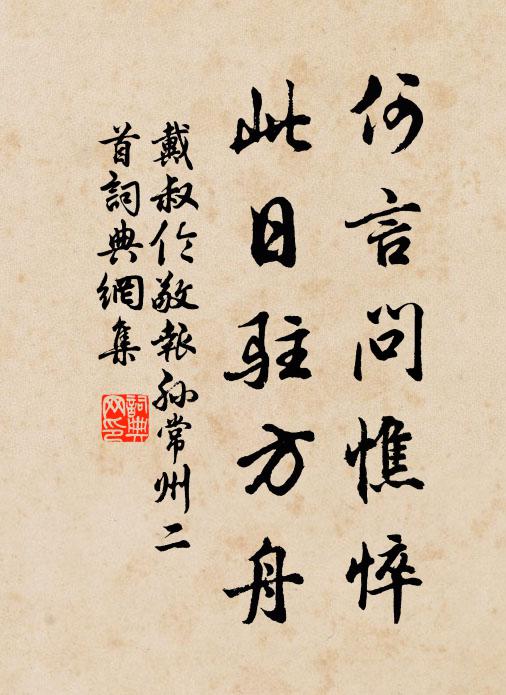 何言問憔悴
此日駐方舟
戴叔伦敬報孙常州二
首詞典網集
詞典网印